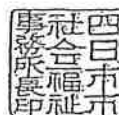 四日市市
社会福祉
事務所長印